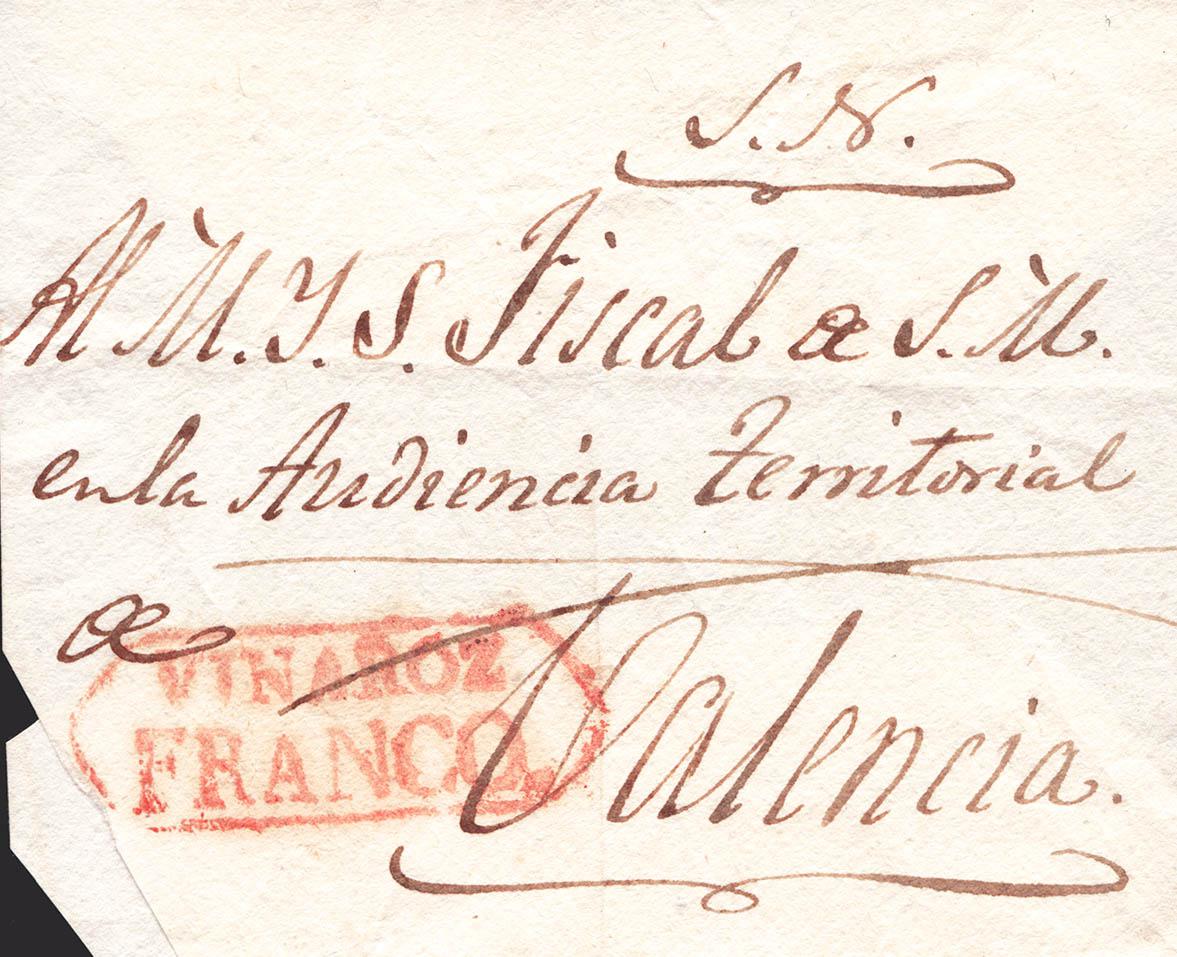 S. N.
Al M. Y. S. Fiscal de S. M.
en la Audiencia Territorial
de
VINAROZ
FRANCO.
Valencia.